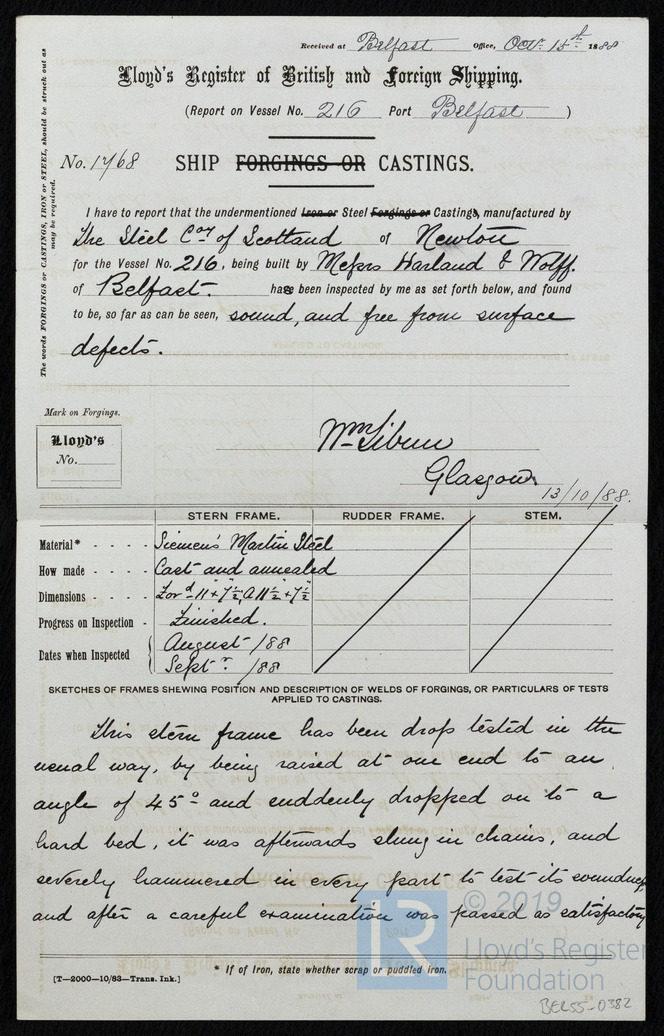 Received at Belfast Office, Oct. 15th 1888
Lloyd's Register of British and Foreign Shipping.
(Report on Vessel No. 216 Port Belfast)
The words FORGINGS or CASTINGS, IRON or STEEL, should be struck out as may be required.
No. 1768
SHIP FORGINGS OR CASTINGS.
I have to report that the undermentioned Iron or Steel Forgings or Castings, manufactured by
The Steel Coy of Scotland of Newton
for the Vessel No. 216, being built by Messrs Harland & Wolff.
of Belfast. has been inspected by me as set forth below, and found
to be, so far as can be seen, sound, and free from surface
defects.
Mark on Forgings.
Lloyd's
No.
Wm
Glasgow
13/10/88.
STERN FRAME. RUDDER FRAME. STEM.
Material* - - - - Siemens Martin Steel
How made - - - - Cast and annealed
Dimensions - - - - Ford 11" + 7½", A 11½" + 7½"
Progress on Inspection - Finished.
Dates when Inspected August /88
Septr. /88
SKETCHES OF FRAMES SHEWING POSITION AND DESCRIPTION OF WELDS OF FORGINGS, OR PARTICULARS OF TESTS
APPLIED TO CASTINGS.
This stern frame has been drop tested in the
usual way, by being raised at one end to an
angle of 45° and suddenly dropped on to a
hard bed, it was afterwards slung in chains, and
severely hammered in every part to test its soundness,
and after a careful examination was passed as satisfactory
© 2019
Lloyd's Register
Foundation
* If of Iron, state whether scrap or puddled iron.
[T—2000—10/83—Trans. Ink.]
BEL55-0382